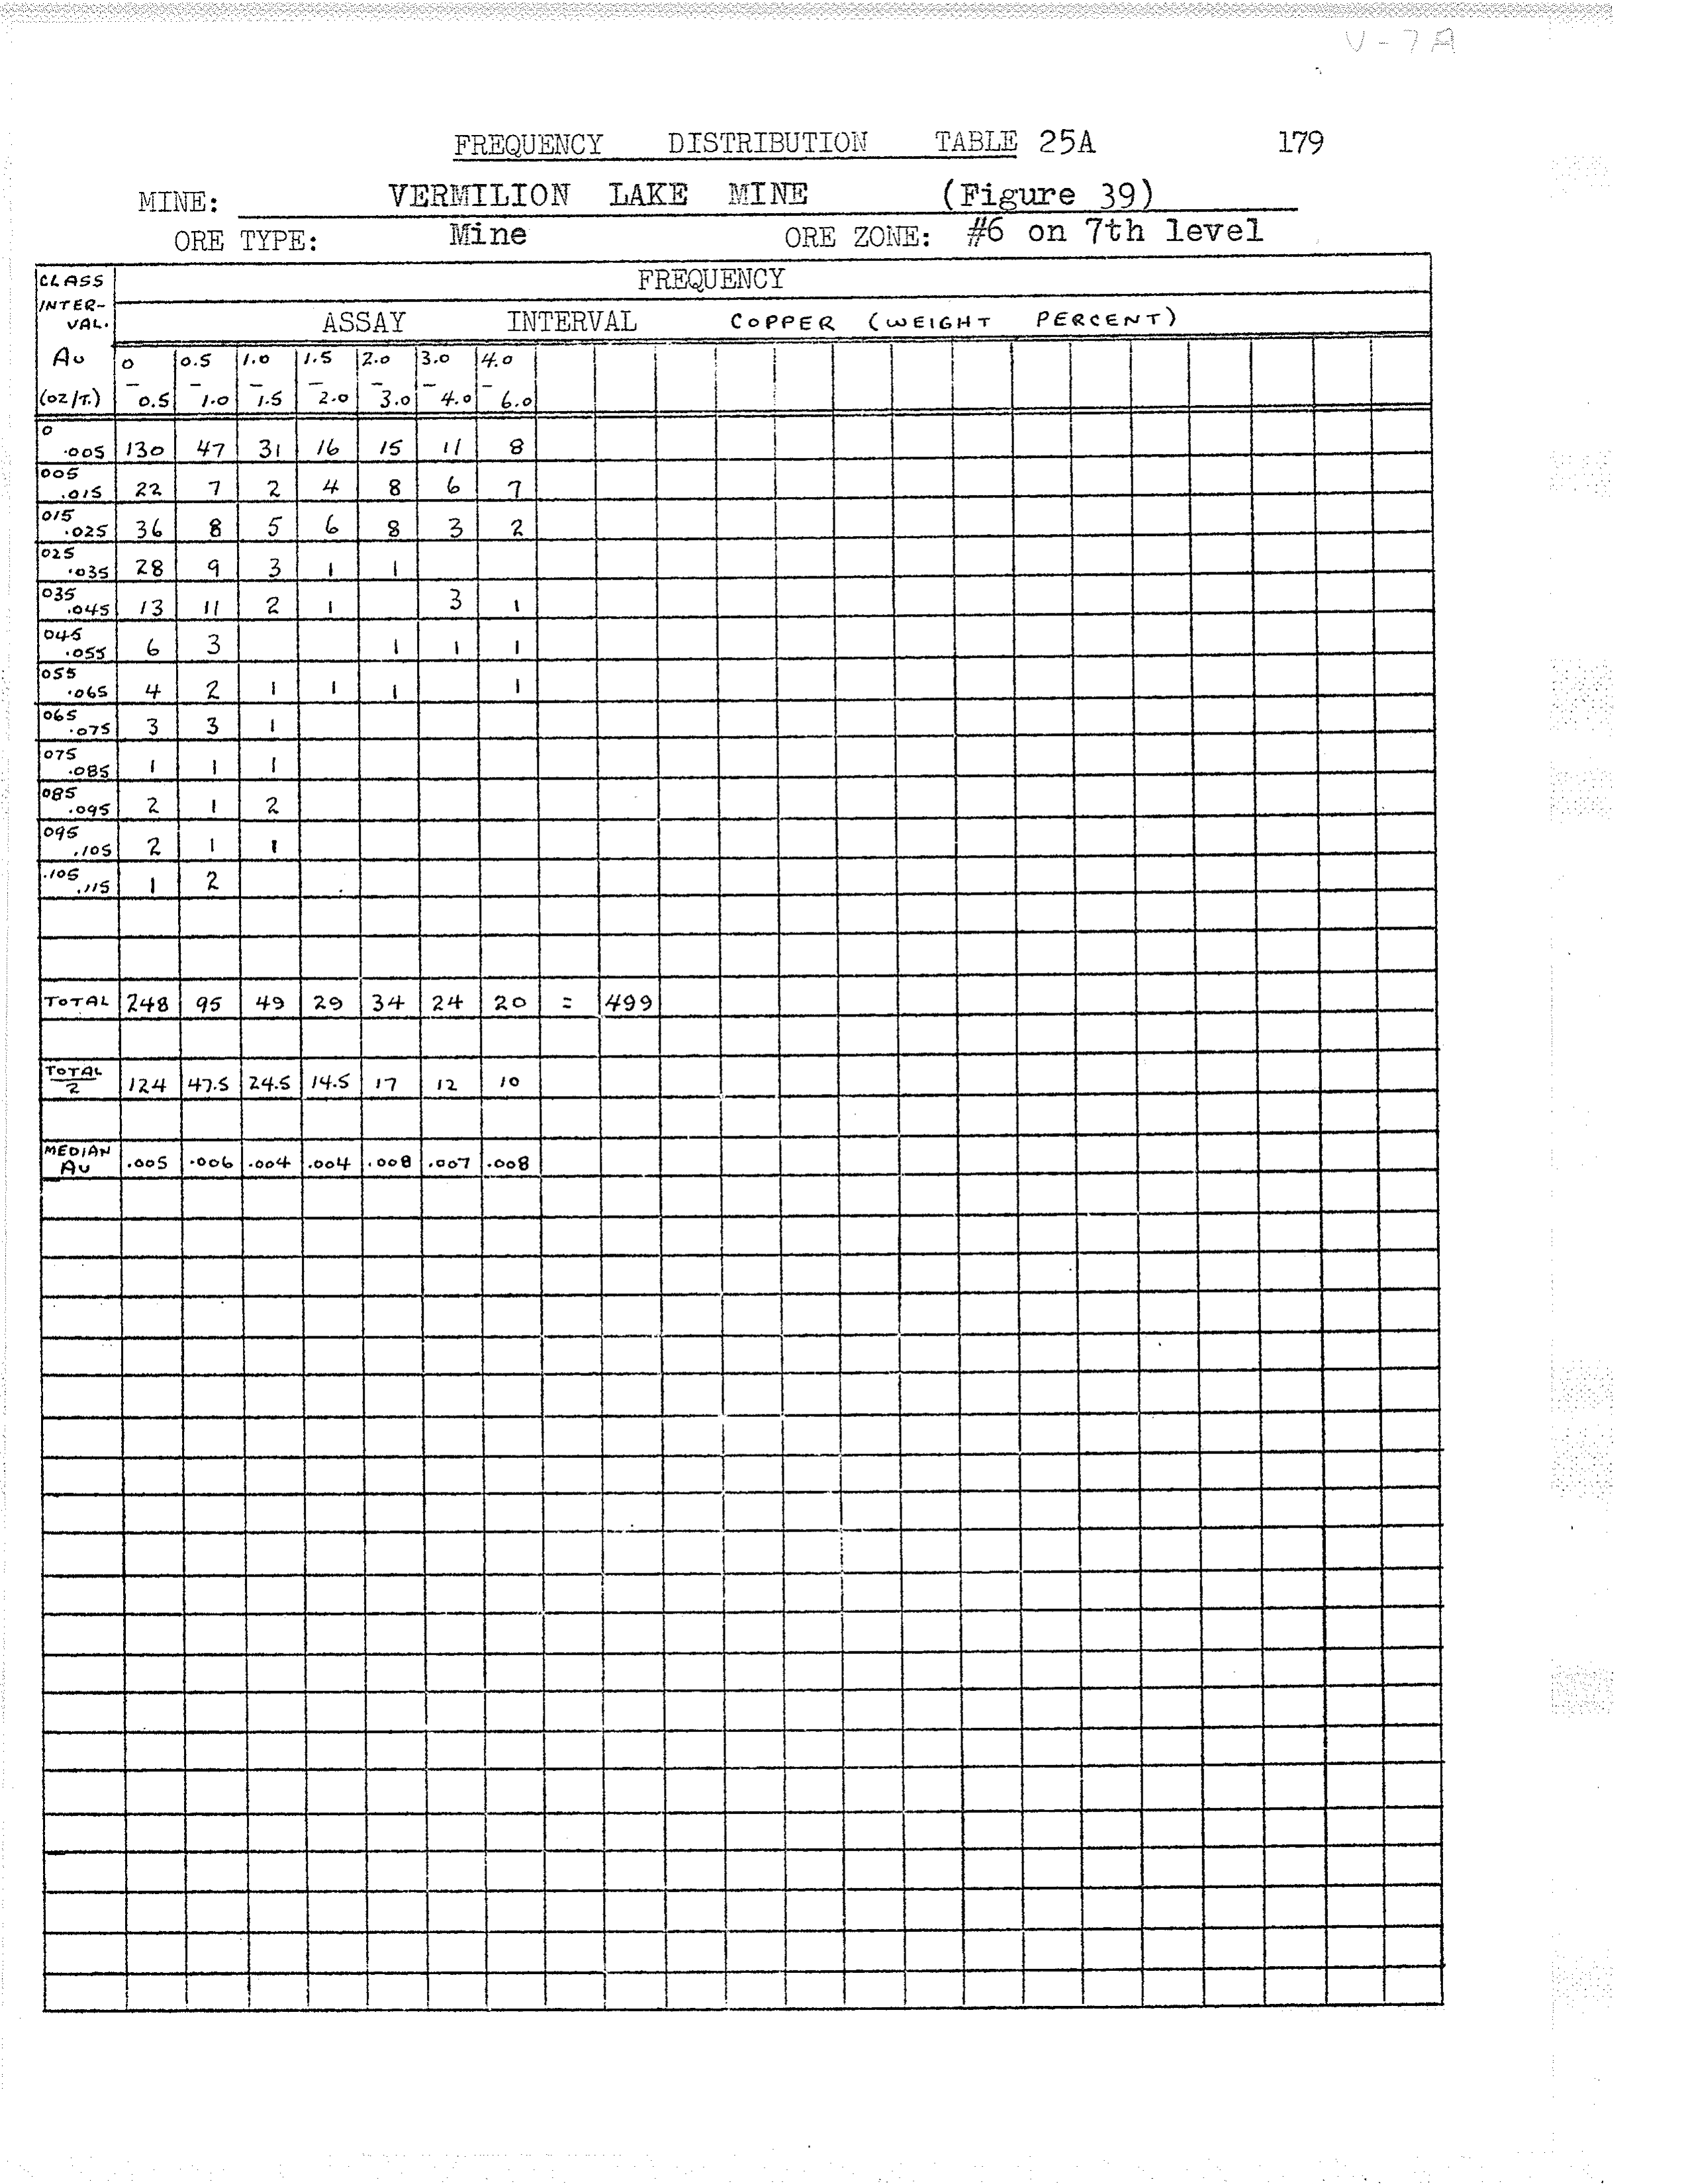 V-7A
FREQUENCY DISTRIBUTION TABLE 25A 179
MINE: VERMILION LAKE MINE (Figure 39)
ORE TYPE: Mine ORE ZONE: #6 on 7th level
CLASS INTER-VAL. FREQUENCY
ASSAY INTERVAL COPPER (WEIGHT PERCENT)
Au 0 0.5 1.0 1.5 2.0 3.0 4.0
(oz/T.) – 0.5 – 1.0 – 1.5 – 2.0 – 3.0 – 4.0 – 6.0
0 .005 130 47 31 16 15 11 8
005 .015 22 7 2 4 8 6 7
015 .025 36 8 5 6 8 3 2
025 .035 28 9 3 1 1
035 .045 13 11 2 1 3 1
045 .055 6 3 1 1 1
055 .065 4 2 1 1 1 1
065 .075 3 3 1
075 .085 1 1 1
085 .095 2 1 2
095 .105 2 1 1
.105 .115 1 2
TOTAL 248 95 49 29 34 24 20 = 499
TOTAL 2 124 47.5 24.5 14.5 17 12 10
MEDIAN Au .005 .006 .004 .004 .008 .007 .008